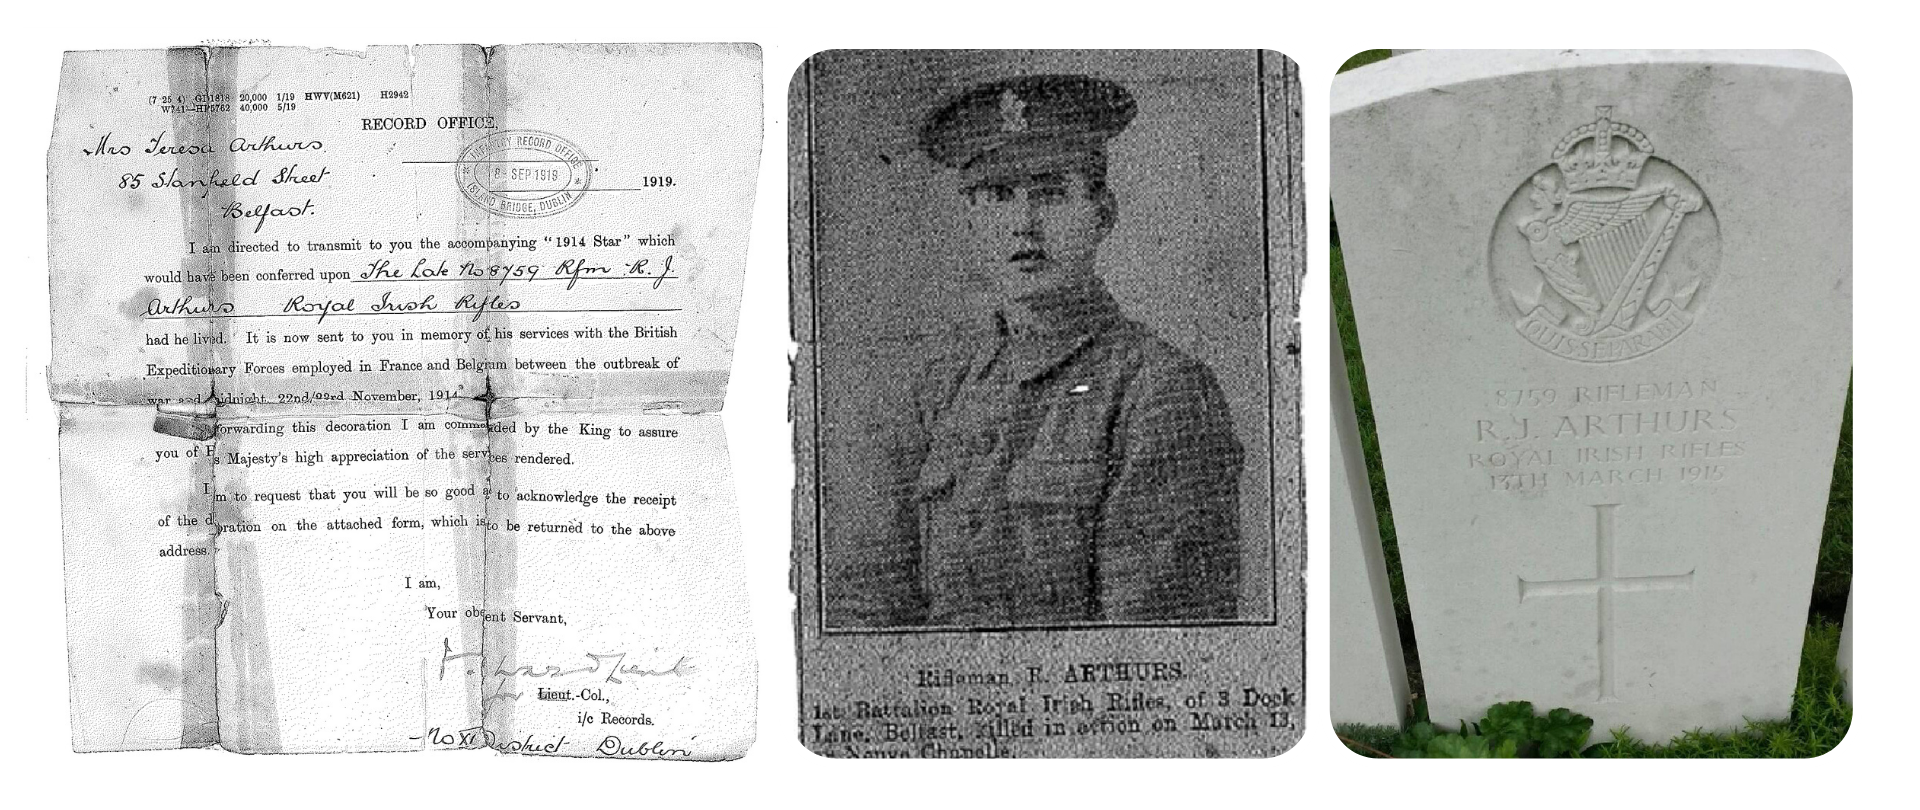 (7 25 4) GD1818 20,000 1/19 HWV(M621) H2942
W741—HP5762 40,000 5/19
RECORD OFFICE,
Mrs Teresa Arthurs
85 Stanfield Street
Belfast.
INFANTRY RECORD OFFICE
8 - SEP 1919
ISLAND BRIDGE, DUBLIN
1919.
I am directed to transmit to you the accompanying "1914 Star" which
would have been conferred upon The Late No 8759 Rfm R. J.
Arthurs Royal Irish Rifles
had he lived. It is now sent to you in memory of his services with the British
Expeditionary Forces employed in France and Belgium between the outbreak of
war and midnight, 22nd/23rd November, 1914.
forwarding this decoration I am commanded by the King to assure
you of His Majesty's high appreciation of the services rendered.
I am to request that you will be so good as to acknowledge the receipt
of the decoration on the attached form, which is to be returned to the above
address.
I am,
Your obedient Servant,
Lieut
for Lieut.-Col.,
i/c Records.
No XI District Dublin
Rifleman R. ARTHURS.
1st Battalion Royal Irish Rifles, of 3 Dock
Lane, Belfast, killed in action on March 13,
Neuve Chapelle.
QUIS SEPARABIT
8759 RIFLEMAN
R.J. ARTHURS
ROYAL IRISH RIFLES
13TH MARCH 1915